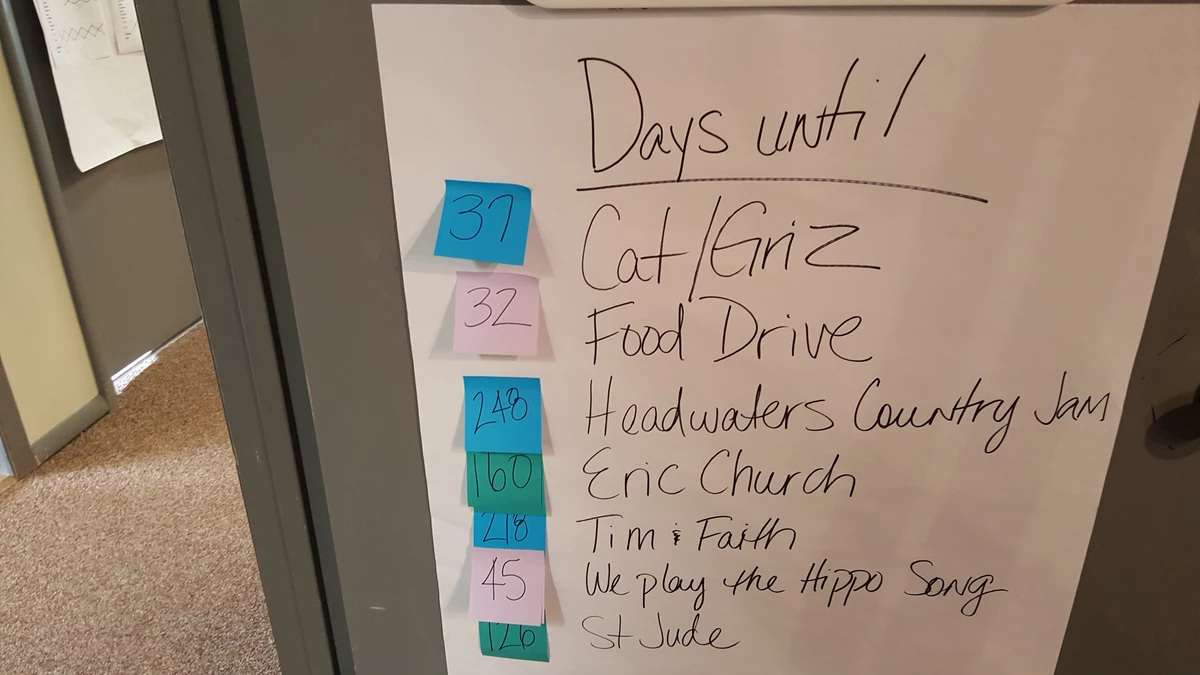 Days until
37 Cat/Griz
32 Food Drive
248 Headwaters Country Jam
160 Eric Church
218 Tim & Faith
45 We play the Hippo Song
126 St Jude